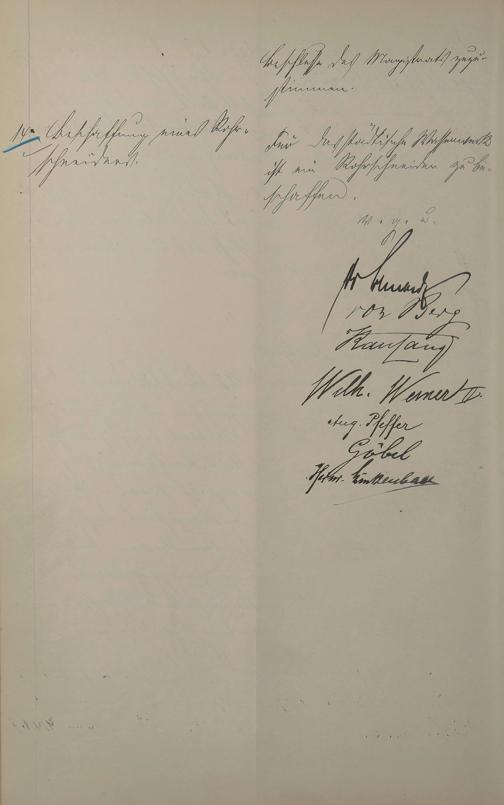 Beschlusse des Magistrats zuzu-
stimmen.
14. Beschaffung eines Rohr-
schneiders.
Für das städtische Wasserwerk
ist ein Rohrschneider zu be-
schaffen.
v. g. u.
von Berg
Wilh. Werner II.
Aug. Pfeffer
Göbel
Herm. Linkenbach